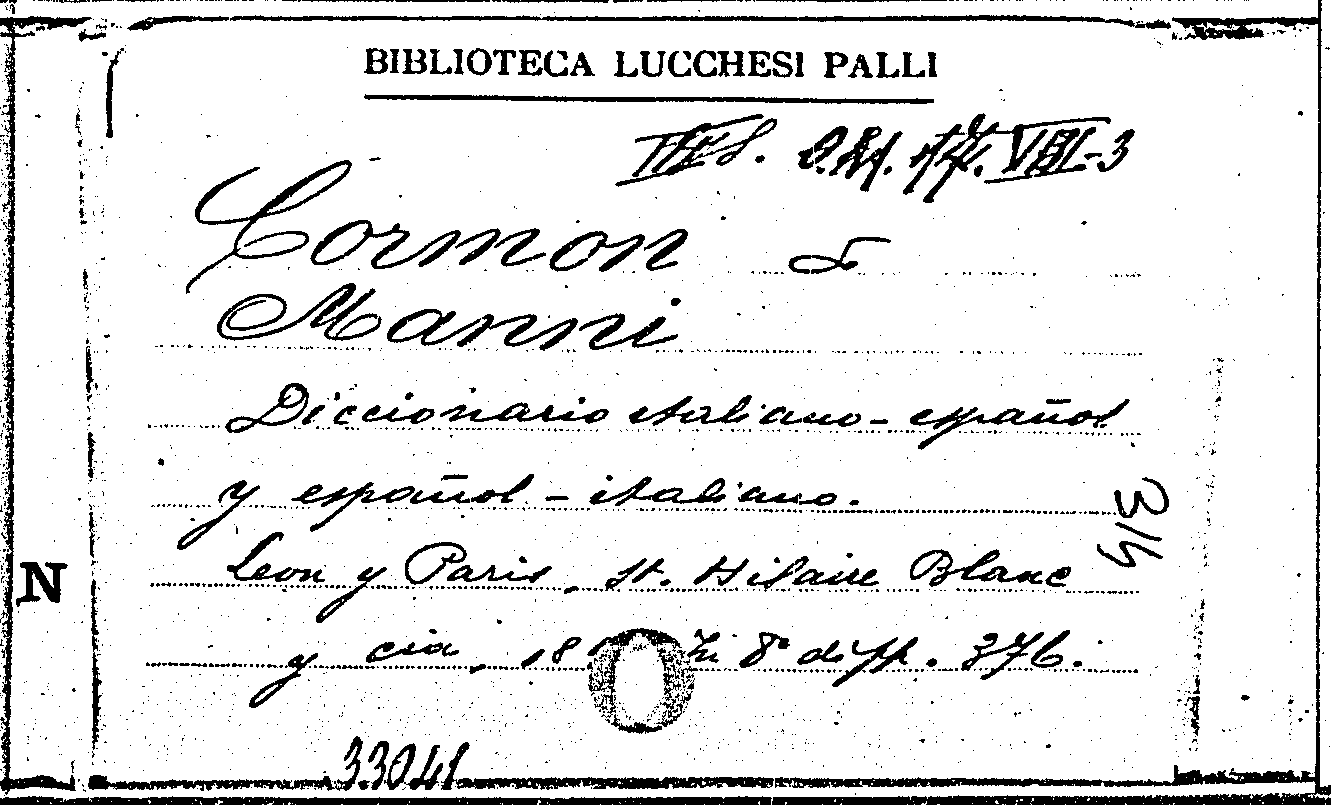 BIBLIOTECA LUCCHESI PALLI
VIII-3
Cormon
Manni
Diccionario italiano - español
y español - italiano.
3/4
Leon y Paris, St. Hilaire Blanc
N
y cia, 18 in 8° di pp. 376.
33041